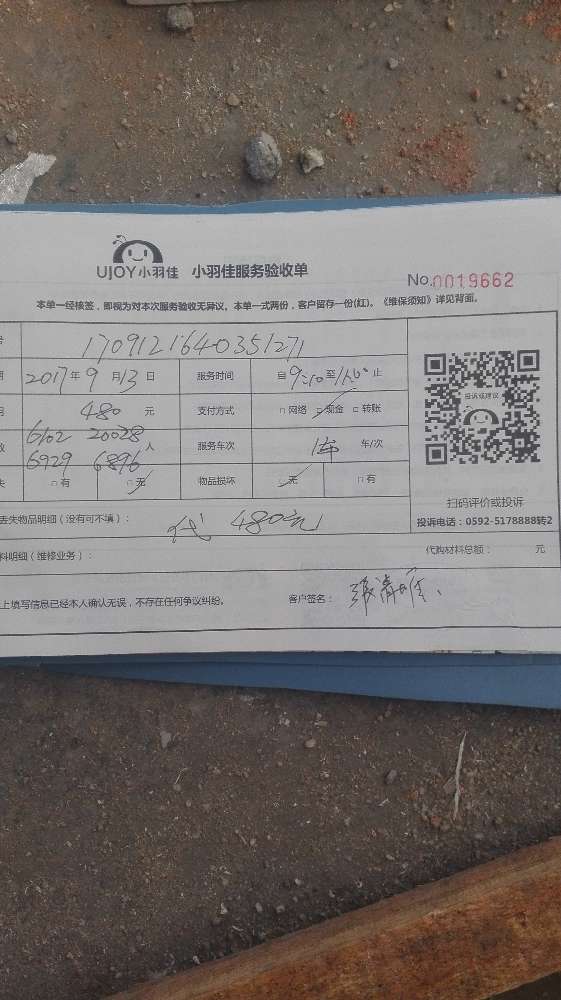 UJOY小羽佳 小羽佳服务验收单
No.0019662
本单一经核签，即视为对本次服务验收无异议。本单一式两份，客户留存一份(红)。《维保须知》详见背面。
号 1709121640351271
期 2017年9月13日 服务时间 自9:10至 止
用 480元 支付方式 □网络 □现金 □转账
投诉或建议
数 6102 20028 6929 6896 人 服务车次 1车 车/次
失 □有 □无 物品损坏 □无 □有
扫码评价或投诉
丢失物品明细（没有可不填）： 代 480元
投诉电话：0592-5178888转2
料明细（维修业务）： 代购材料总额： 元
上填写信息已经本人确认无误，不存在任何争议纠纷。 客户签名： 张